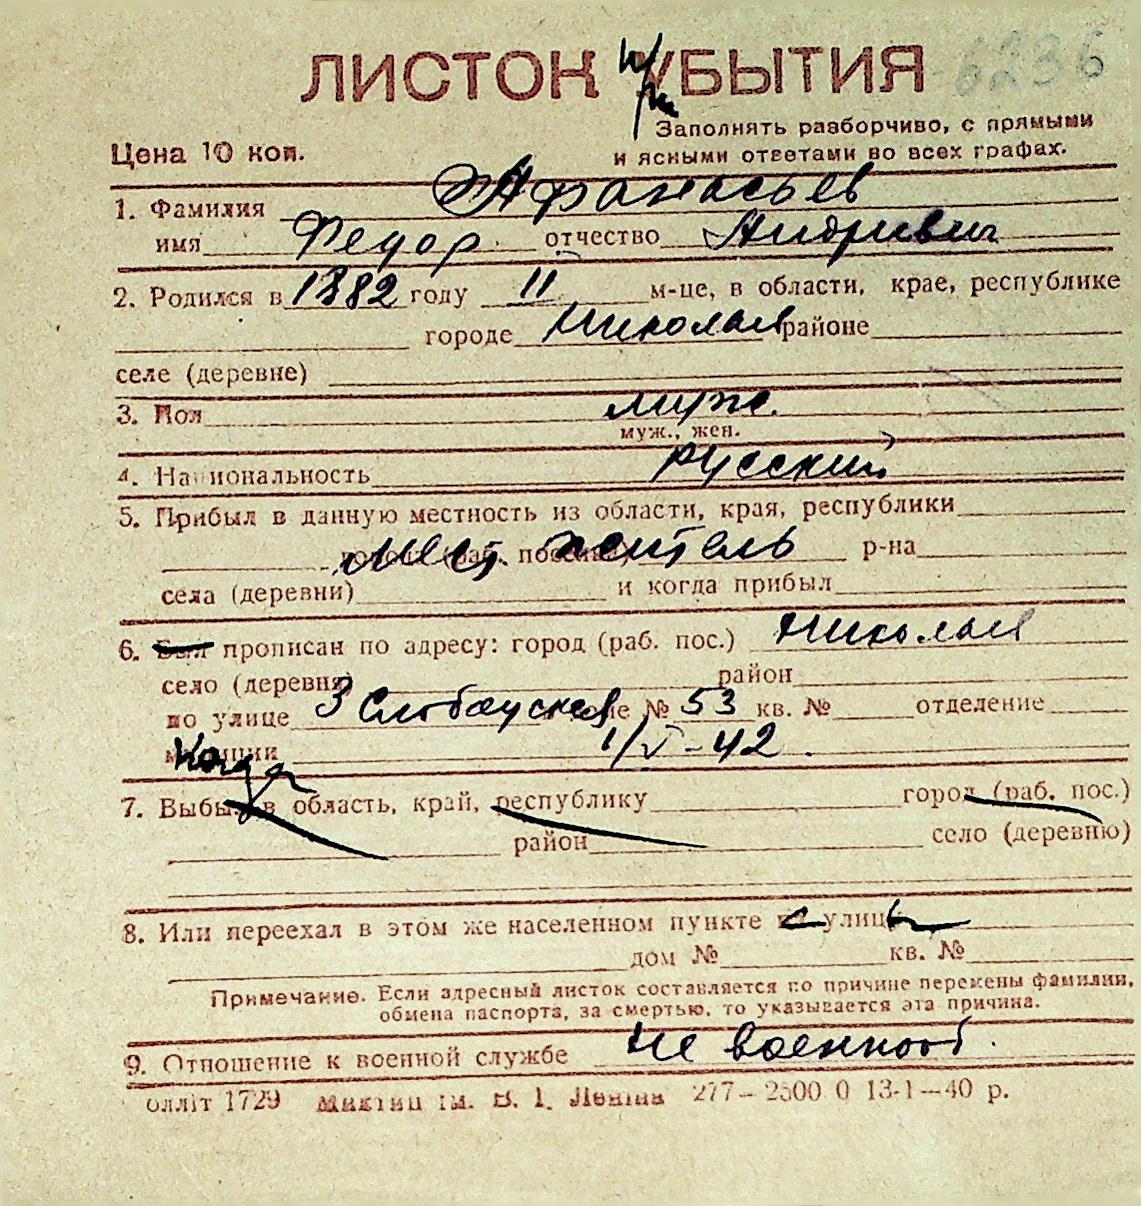 ЛИСТОК УБЫТИЯ 6236
Заполнять разборчиво, с прямыми
Цена 10 коп. и ясными ответами во всех графах.
1. Фамилия Афанасьев
имя Федор отчество
2. Родился в 1882 году II м-це, в области, крае, республике
городе Николаев районе
селе (деревне)
3. Пол муж.
муж., жен.
4. Национальность русский
5. Прибыл в данную местность из области, края, республики
мест. житель р-на
села (деревни) и когда прибыл
6. Был прописан по адресу: город (раб. пос.) Николаев
село (деревня) район
по улице 3 Слободская № 53 кв. № отделение
милиции 1/V-42.
Когда
7. Выбыл в область, край, республику город (раб. пос.)
район село (деревню)
8. Или переехал в этом же населенном пункте с улицы
дом № кв. №
Примечание. Если адресный листок составляется по причине перемены фамилии,
обмена паспорта, за смертью, то указывается эта причина.
9. Отношение к военной службе не военнооб.
олліт 1729 ім. В. І. Леніна 277—2500 0 13-1—40 р.